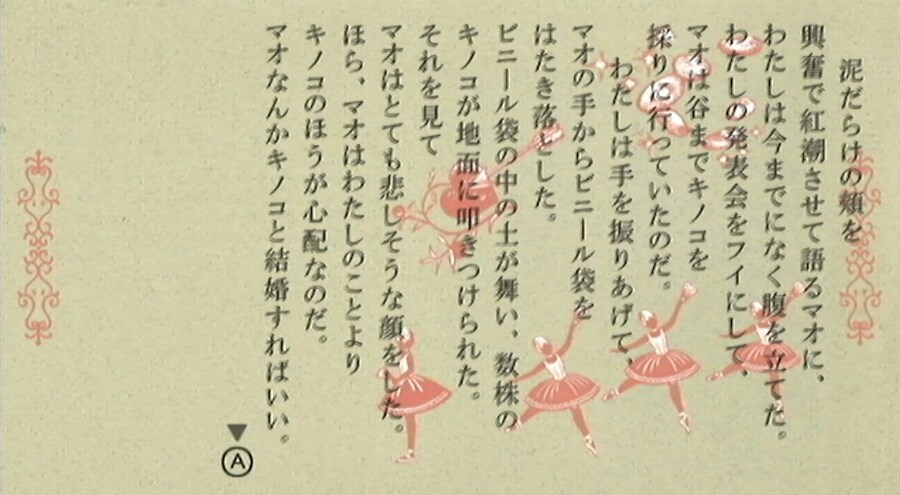 泥だらけの頬を
興奮で紅潮させて語るマオに、
わたしは今までになく腹を立てた。
わたしの発表会をフイにして、
マオは谷までキノコを
採りに行っていたのだ。
わたしは手を振りあげて、
マオの手からビニール袋を
はたき落とした。
ビニール袋の中の土が舞い、数株の
キノコが地面に叩きつけられた。
それを見て
マオはとても悲しそうな顔をした。
ほら、マオはわたしのことより
キノコのほうが心配なのだ。
マオなんかキノコと結婚すればいい。
A